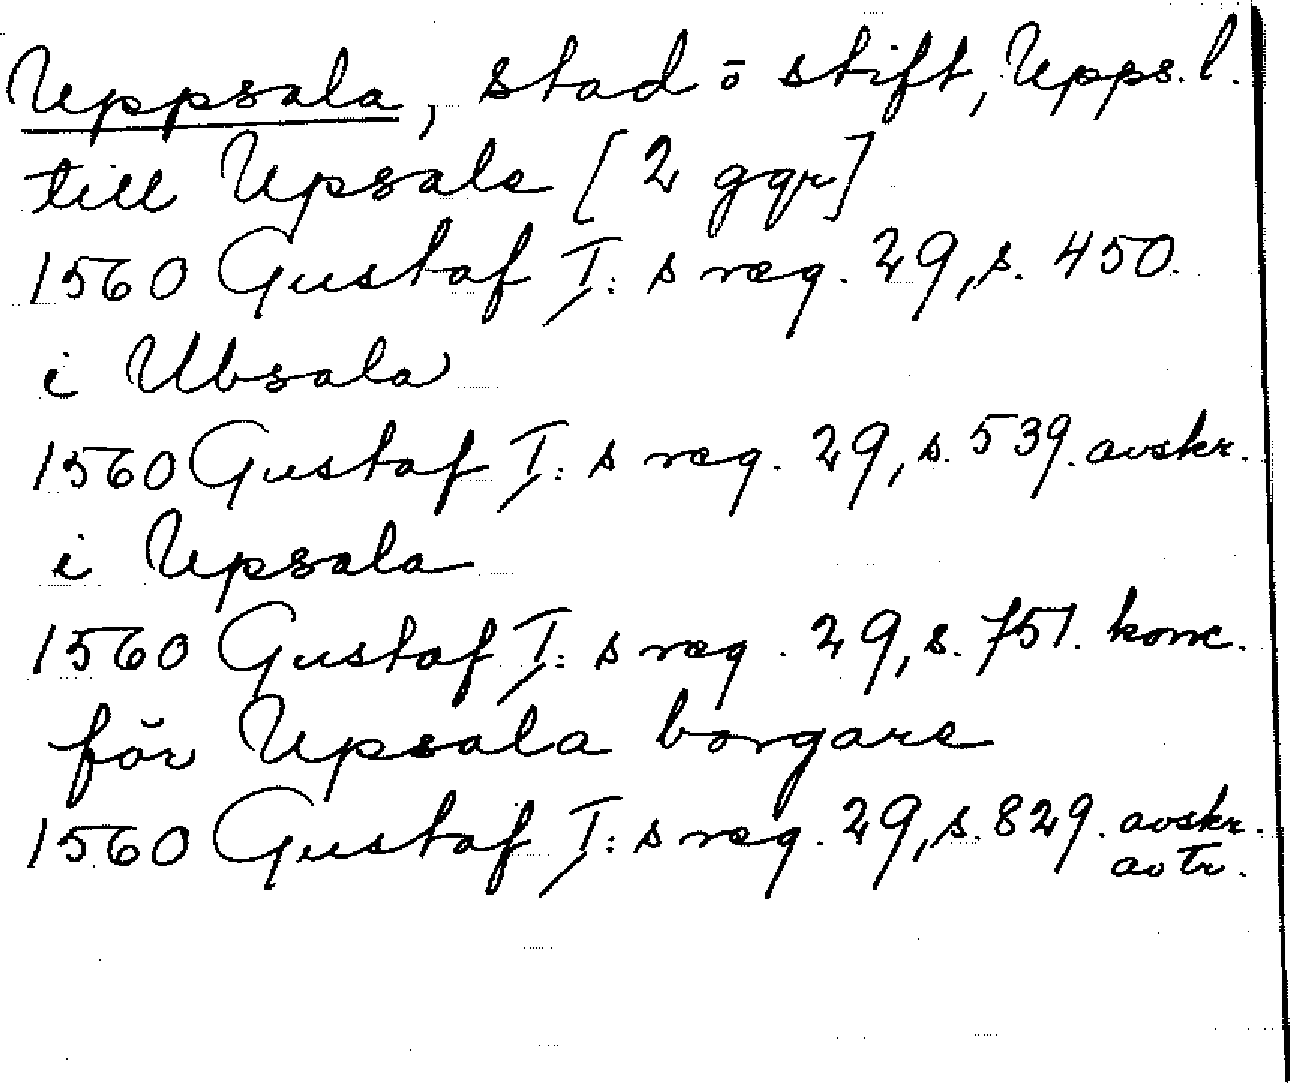 Uppsala, stad o stift, Upps. l.
till Upsale [2 ggr]
1560 Gustaf I: s reg. 29, s. 450.
i Ubsala
1560 Gustaf I: s reg. 29, s. 539. avskr.
i Upsala
1560 Gustaf I: s reg. 29, s. 751. konc.
för Upsala borgare
1560 Gustaf I: s reg. 29, s. 829. avskr.
av tr.